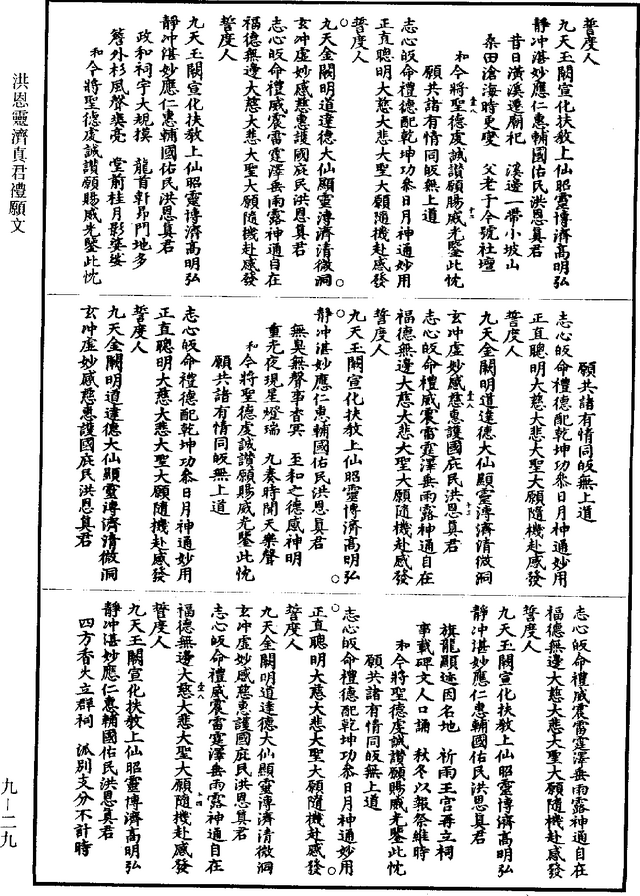 誓度人
九天玉闕宣化扶教上仙昭靈博濟高明弘
靜冲湛妙應仁惠輔國佑民洪恩眞君
昔日潢溪遷廟祀　溪邊一帶小坡山
桑田滄海時更變　父老于今號社壇
和今將聖德虔誠讃願賜威光鑒此忱
願共諸有情同皈無上道
志心皈命禮德配乾坤功叅日月神通妙用
正直聰明大慈大悲大聖大願隨機赴感發
誓度人
九天金闕明道達德大仙顯靈溥濟清微洞
玄冲虛妙感慈惠護國庇民洪恩眞君
志心皈命禮威震雷霆澤垂雨露神通自在
福德無邊大慈大悲大聖大願隨機赴感發
誓度人
九天玉闕宣化扶教上仙昭靈博濟高明弘
靜冲湛妙應仁惠輔國佑民洪恩眞君
政和祠宇大規摸　龍首軒昂門地多
簷外杉風聲奏亮　堂前桂月影婆娑
和今將聖德虔誠讃願賜威光鑒此忱
願共諸有情同皈無上道
志心皈命禮德配乾坤功叅日月神通妙用
正直聰明大慈大悲大聖大願隨機赴感發
誓度人
九天金闕明道達德大仙顯靈溥濟清微洞
玄冲虛妙感慈惠護國庇民洪恩眞君
志心皈命禮威震雷霆澤垂雨露神通自在
福德無邊大慈大悲大聖大願隨機赴感發
誓度人
九天玉闕宣化扶教上仙昭靈博濟高明弘
靜冲湛妙應仁惠輔國佑民洪恩眞君
無臭無聲事杳冥　至和之德感神明
重光夜現星燈瑞　九奏時聞天樂聲
和今將聖德虔誠讃願賜威光鑒此忱
願共諸有情同皈無上道
志心皈命禮德配乾坤功叅日月神通妙用
正直聰明大慈大悲大聖大願隨機赴感發
誓度人
九天金闕明道達德大仙顯靈溥濟清微洞
玄冲虛妙感慈惠護國庇民洪恩眞君
志心皈命禮威震雷霆澤垂雨露神通自在
福德無邊大慈大悲大聖大願隨機赴感發
誓度人
九天玉闕宣化扶教上仙昭靈博濟高明弘
靜冲湛妙應仁惠輔國佑民洪恩眞君
旗龍顯迹因名地　祈雨王宮再立祠
事載碑文人口誦　秋冬以報祭維時
和今將聖德虔誠讃願賜威光鑒此忱
願共諸有情同皈無上道
志心皈命禮德配乾坤功叅日月神通妙用
正直聰明大慈大悲大聖大願隨機赴感發
誓度人
九天金闕明道達德大仙顯靈溥濟清微洞
玄冲虛妙感慈惠護國庇民洪恩眞君
志心皈命禮威震雷霆澤垂雨露神通自在
福德無邊大慈大悲大聖大願隨機赴感發
誓度人
九天玉闕宣化扶教上仙昭靈博濟高明弘
靜冲湛妙應仁惠輔國佑民洪恩眞君
四方香火立群祠　派別支分不計時
洪恩靈濟真君禮願文
九—二九